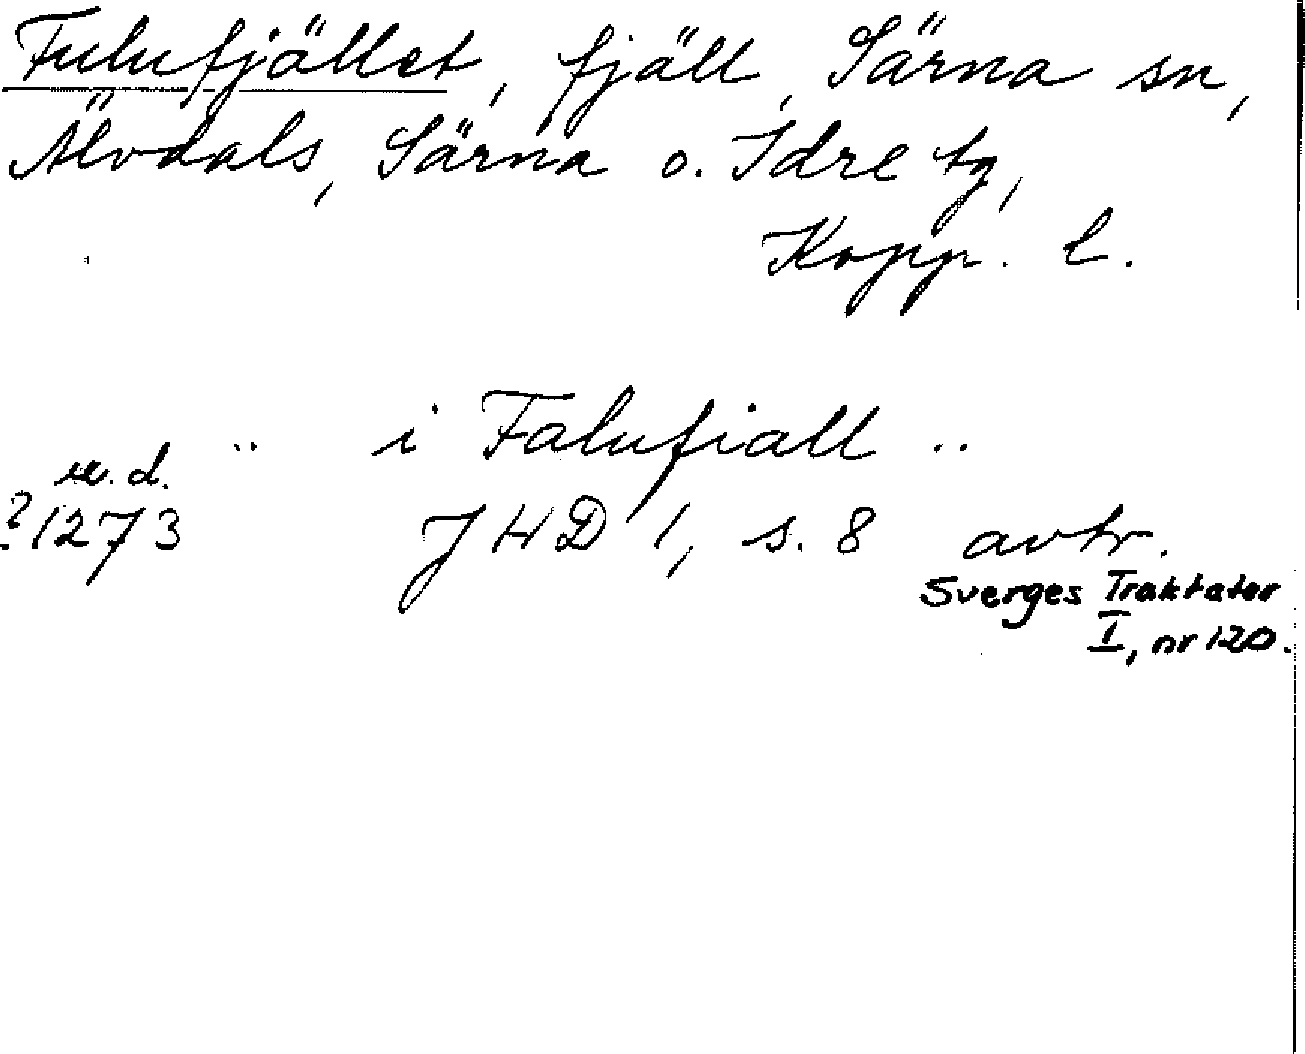 Fulufjället, fjäll, Särna sn,
Älvdals, Särna o. Idre tg,
Kopp. l.
.. i Falufiall ..
u. d.
?1273 JHD 1, s. 8 avtr.
Sverges Traktater
I, nr 120.